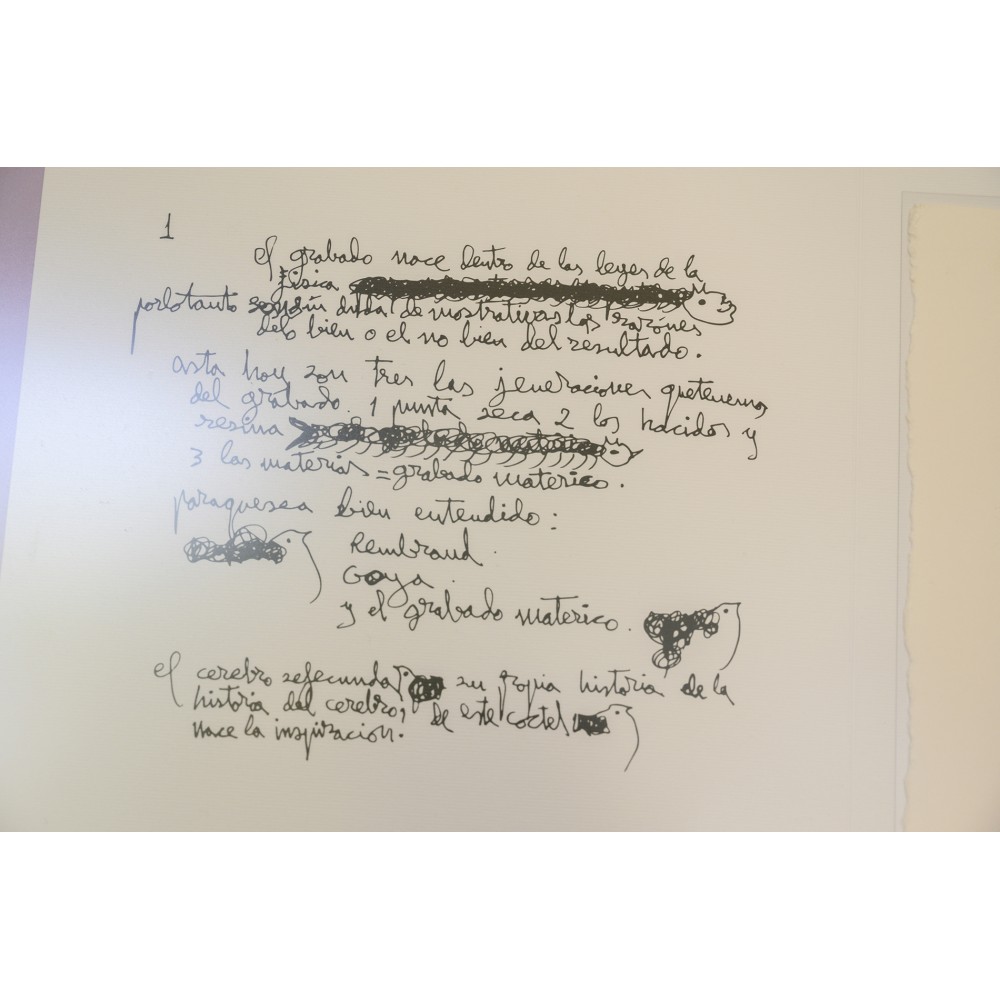 1
el grabado nace dentro de las leyes de la
fisica
porlotanto son sin duda demostrativas las razones
delo bien o el no bien del resultado.
asta hoy son tres las jeneraciones quetenemos
del grabado. 1 punta seca 2 los hacidos y
resina
3 las materias = grabado materico.
paraquesea bien entendido:
Rembrand.
Goya.
y el grabado materico.
el cerebro sefecunda su propia historia de la
historia del cerebro, de este coctel
nace la inspiracion.